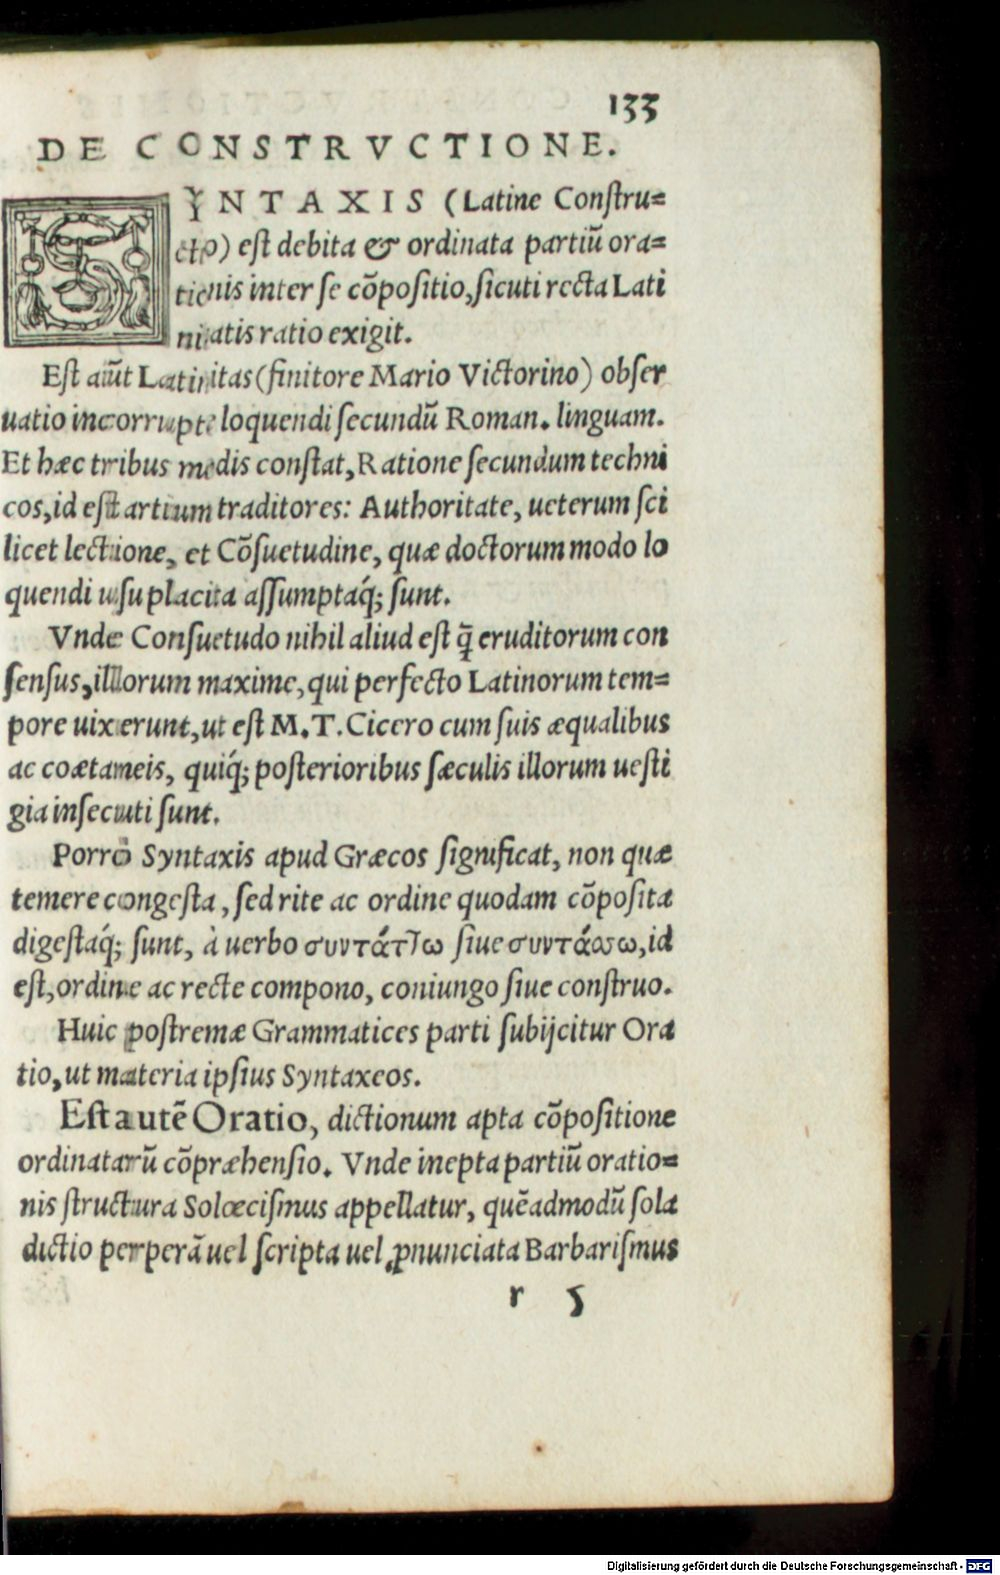 133
DE CONSTRVCTIONE.
SYNTAXIS (Latine Constru=
ctio) est debita & ordinata partiū ora=
tionis inter se cōpositio, sicuti recta Lati
nitatis ratio exigit.
Est aūt Latinitas (finitore Mario Victorino) obser
uatio incorrupte loquendi secundū Roman. linguam.
Et hæc tribus modis constat, Ratione secundum techni
cos, id est artium traditores: Authoritate, ueterum sci
licet lectione, et Cōsuetudine, quæ doctorum modo lo
quendi usu placita assumptaq́; sunt.
Vnde Consuetudo nihil aliud est q̄ eruditorum con
sensus, illorum maxime, qui perfecto Latinorum tem=
pore uixerunt, ut est M. T. Cicero cum suis æqualibus
ac coætaneis, quiq́; posterioribus sæculis illorum uesti
gia insecuti sunt.
Porrò Syntaxis apud Græcos significat, non quæ
temere congesta, sed rite ac ordine quodam cōposita
digestaq́; sunt, à uerbo συντάττω siue συντάσσω, id
est, ordine ac recte compono, coniungo siue construo.
Huic postremæ Grammatices parti subijcitur Ora
tio, ut materia ipsius Syntaxeos.
Est autē Oratio, dictionum apta cōpositione
ordinatarū cōpræhensio. Vnde inepta partiū oratio=
nis structura Solœcismus appellatur, quēadmodū sola
dictio perperā uel scripta uel ꝓnunciata Barbarismus
r 5
Digitalisierung gefördert durch die Deutsche Forschungsgemeinschaft - DFG